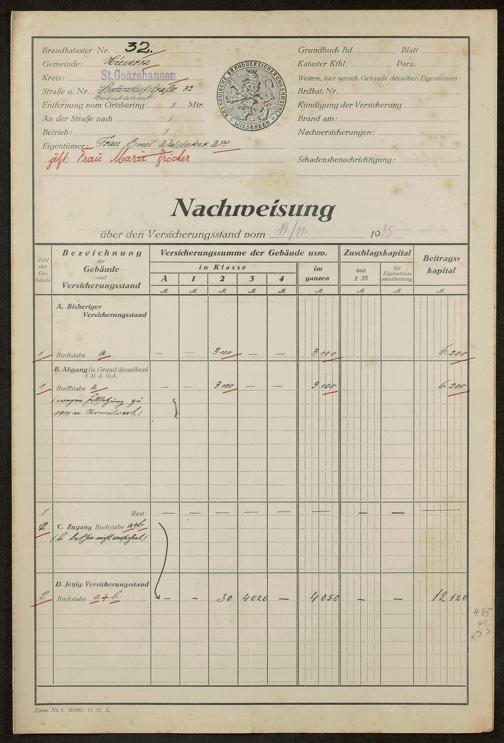 Brandkataster Nr. 32.
Gemeinde:
Kreis: St. Goarshausen
Straße u. Nr. 32
Entfernung vom Ortsbering 1 Mtr.
An der Straße nach 1
Betrieb: 1
Eigentümer: Frau Emil Waldecker Ww
jetzt Frau Maria
Grundbuch Bd. Blatt
Kataster Ktbl. Parz.
Weitere, hier versich. Gebäude desselben Eigentümers:
Brdkat. Nr.
Kündigung der Versicherung
Brand am:
Nachversicherungen:
Schadensbenachrichtigung:
NASSAUISCHE BRANDVERSICHERUNGSANSTALT
WIESBADEN
Nachweisung
über den Versicherungsstand vom 19/11. 1935
Zahl der Gebäude
Bezeichnung der Gebäude und Versicherungsstand
Versicherungssumme der Gebäude usw.
in Klasse
A 1 2 3 4
im ganzen
Zuschlagskapital
aus § 35
für Explosionsversicherung
Beitragskapital
M. M. M. M. M. M. M. M. M.
A. Bisheriger Versicherungsstand
1 Buchstabe a — — 3100 — — 3100 6.200
B. Abgang (u. Grund desselben)
1 Buchstabe a 3100 — — 3100 6.200
(wegen zu
1914er
1 Rest: — — — — — — — — —
2 C. Zugang Buchstabe a+b
D. Jetzig. Versicherungsstand
2 Buchstabe a+b — — 30 4020 — 4050 — — 12120
Form. Nr. 1. 11. 31. L.